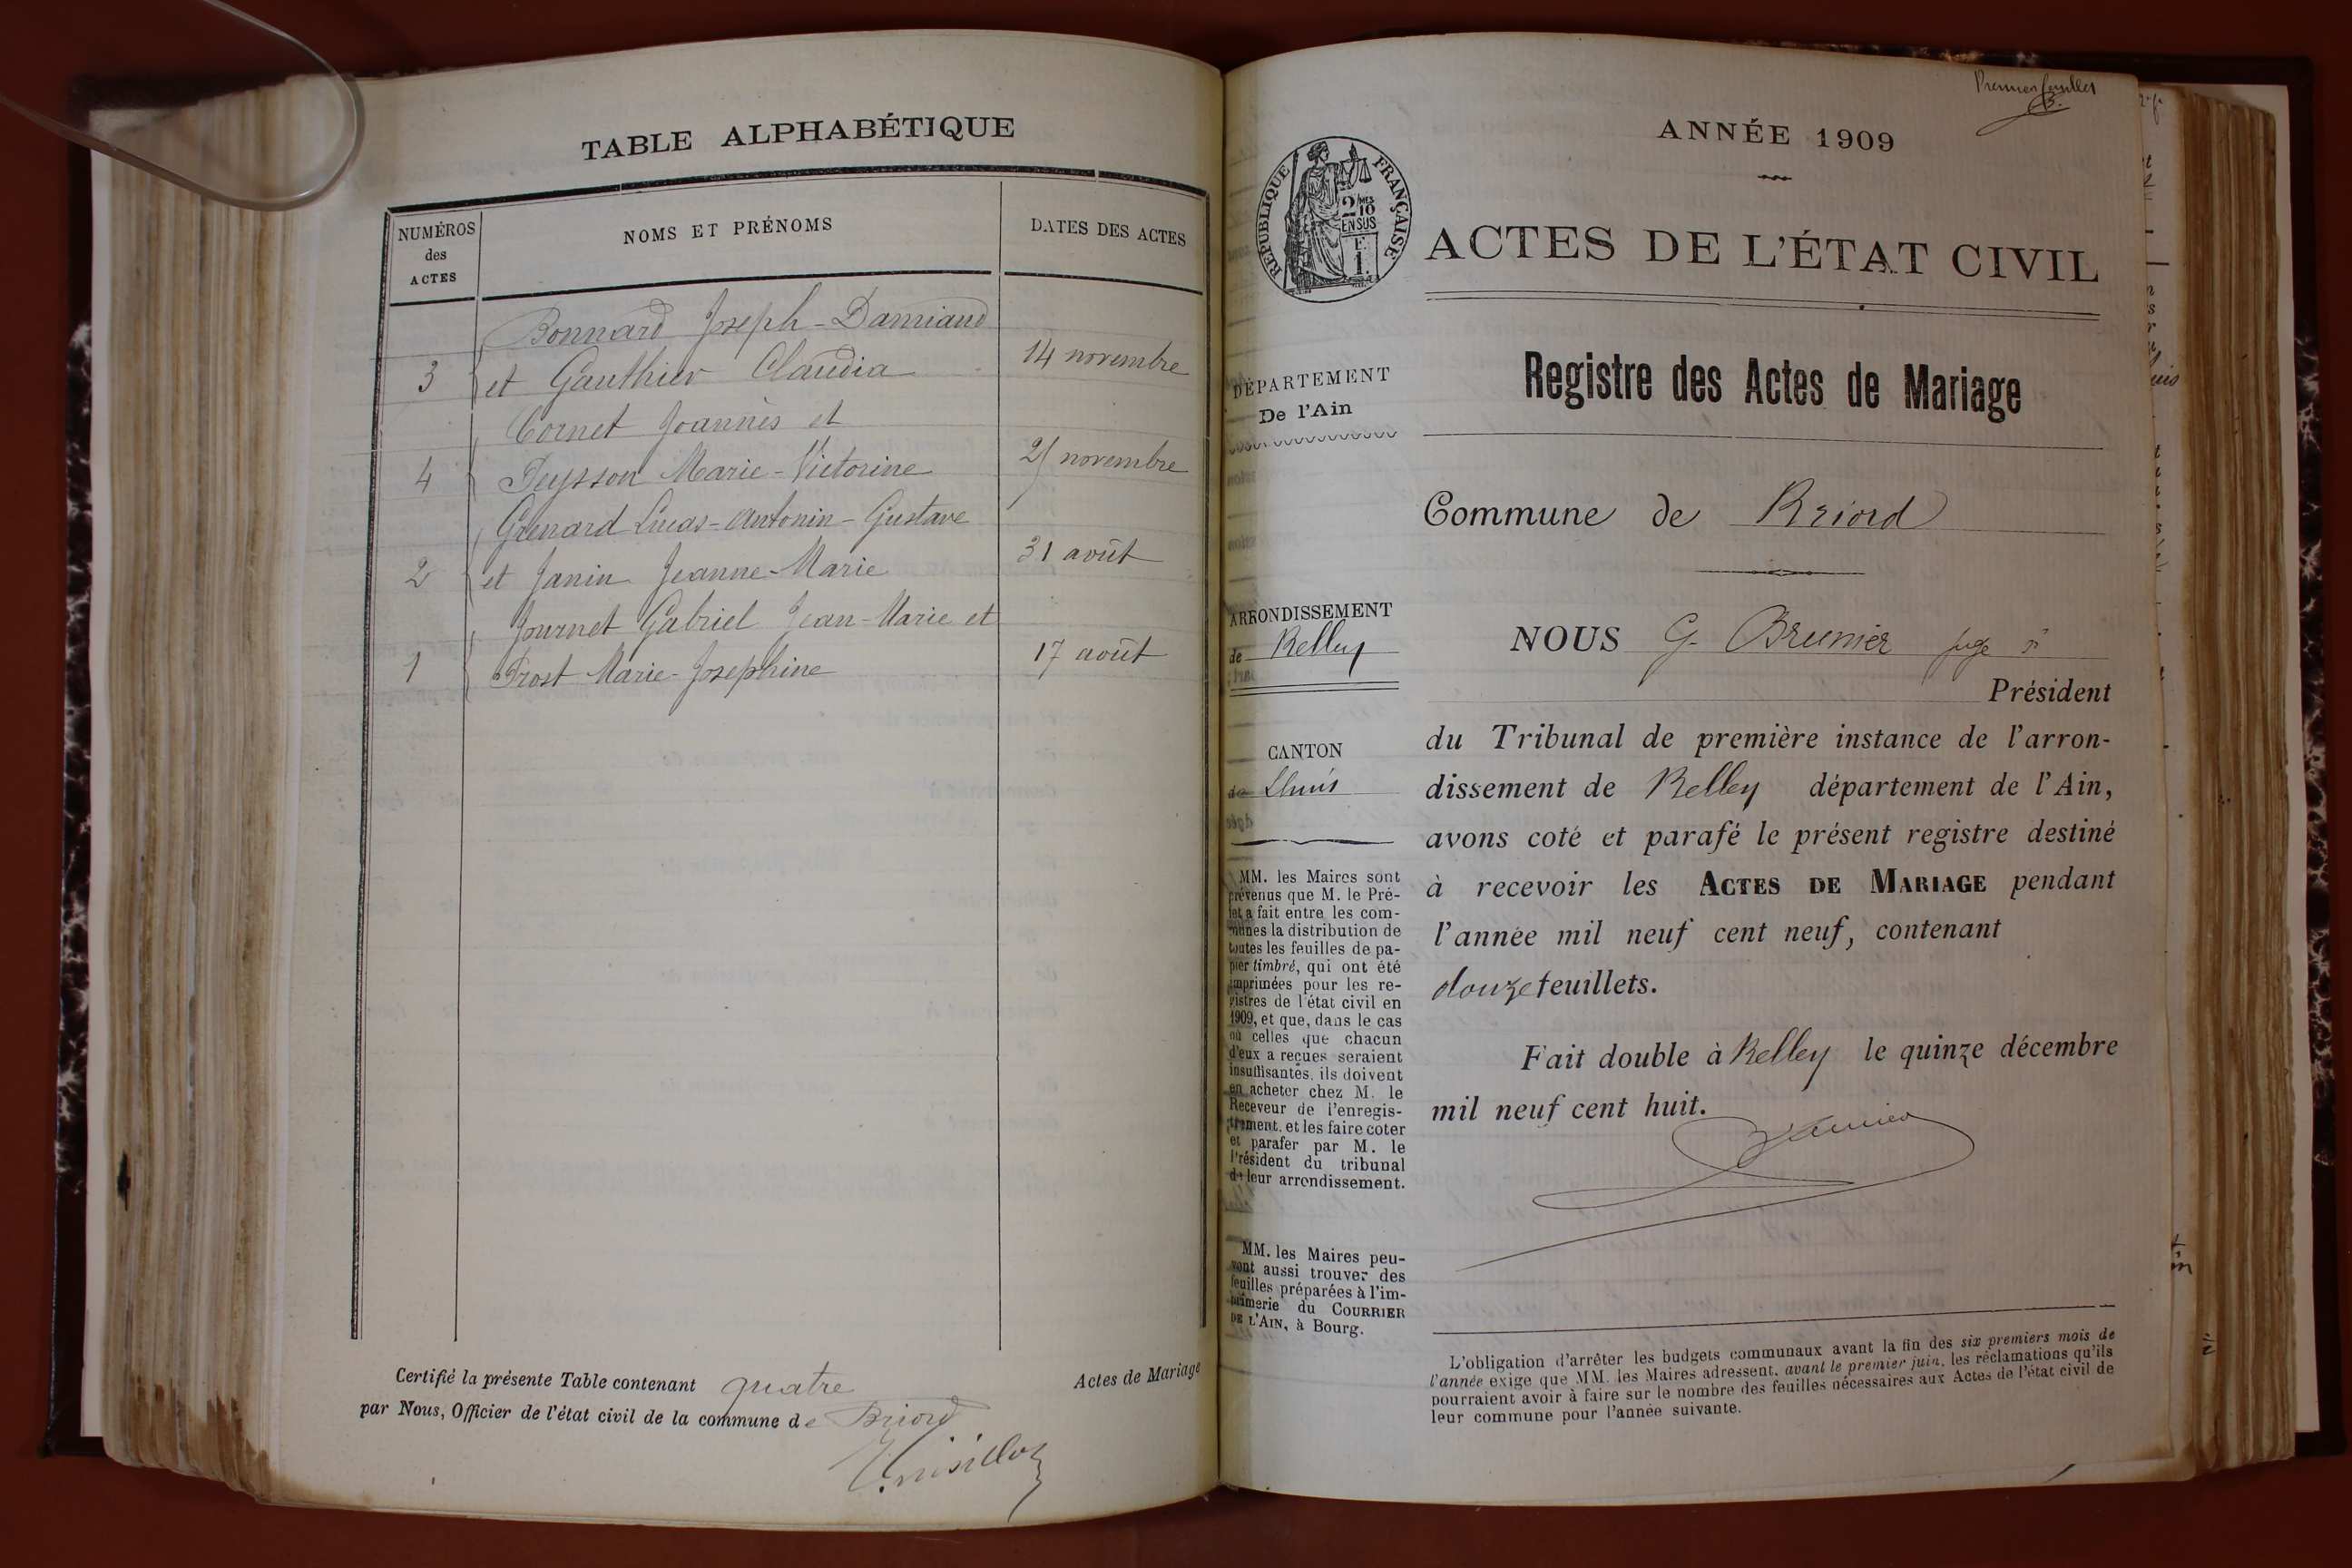 TABLE ALPHABÉTIQUE
NUMÉROS
des
ACTES
NOMS ET PRÉNOMS
DATES DES ACTES
Bonnard Joseph-Damiand
3 et Gauthier Claudia 14 novembre
Cornet Joannès et
4 Peysson Marie-Victorine novembre
Grenard Lucas-Antonin-Gustave
2 et Janin Jeanne-Marie 31 août
Journet Gabriel Jean-Marie et
1 Prost Marie-Josephine 17 août
Certifié la présente Table contenant quatre Actes de Mariage
par Nous, Officier de l'état civil de la commune de Briord
Premier feuillet
ANNÉE 1909
RÉPUBLIQUE FRANÇAISE
2/10MES
EN SUS
F.
1.
ACTES DE L'ÉTAT CIVIL
DÉPARTEMENT
De l'Ain
ARRONDISSEMENT
de Belley
CANTON
de Lhuis
MM. les Maires sont
prévenus que M. le Pré-
fet a fait entre les com-
munes la distribution de
toutes les feuilles de pa-
pier timbré, qui ont été
imprimées pour les re-
gistres de l'état civil en
1909, et que, dans le cas
où celles que chacun
d'eux a reçues seraient
insuffisantes, ils doivent
en acheter chez M. le
Receveur de l'enregis-
trement, et les faire coter
et parafer par M. le
Président du tribunal
de leur arrondissement.
MM. les Maires peu-
vent aussi trouver des
feuilles préparées à l'im-
primerie du COURRIER
DE L'AIN, à Bourg.
Registre des Actes de Mariage
Commune de Briord
NOUS G. Brunier juge
Président
du Tribunal de première instance de l'arron-
dissement de Belley département de l'Ain,
avons coté et parafé le présent registre destiné
à recevoir les ACTES DE MARIAGE pendant
l'année mil neuf cent neuf, contenant
douze feuillets.
Fait double à Belley le quinze décembre
mil neuf cent huit.
Brunier
L'obligation d'arrêter les budgets communaux avant la fin des six premiers mois de
l'année exige que MM. les Maires adressent, avant le premier juin, les réclamations qu'ils
pourraient avoir à faire sur le nombre des feuilles nécessaires aux Actes de l'état civil de
leur commune pour l'année suivante.